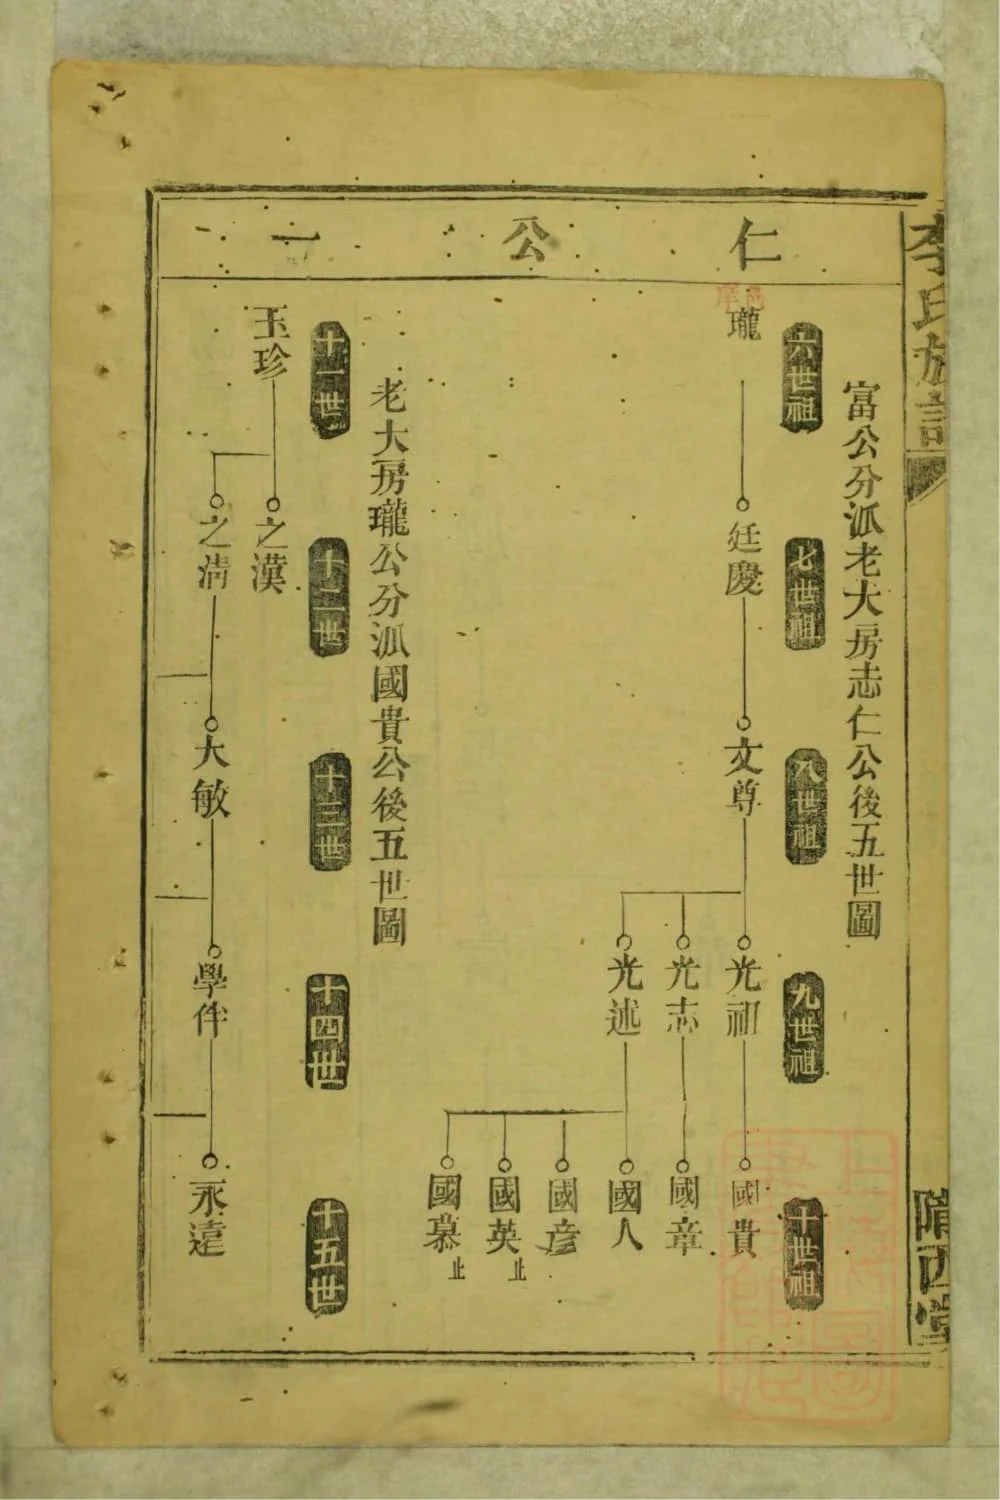 李氏族譜
隴西堂
仁公一
富公分派老大房志仁公後五世圖
六世祖
七世祖
八世祖
九世祖
十世祖
瓏
廷慶
文尊
光祖
國貴
光志
國章
光述
國人
國彦
國英 止
國慕 止
老大房瓏公分派國貴公後五世圖
十一世
十二世
十三世
十四世
十五世
玉珍
之漢
之清
大敏
學伴
永遠